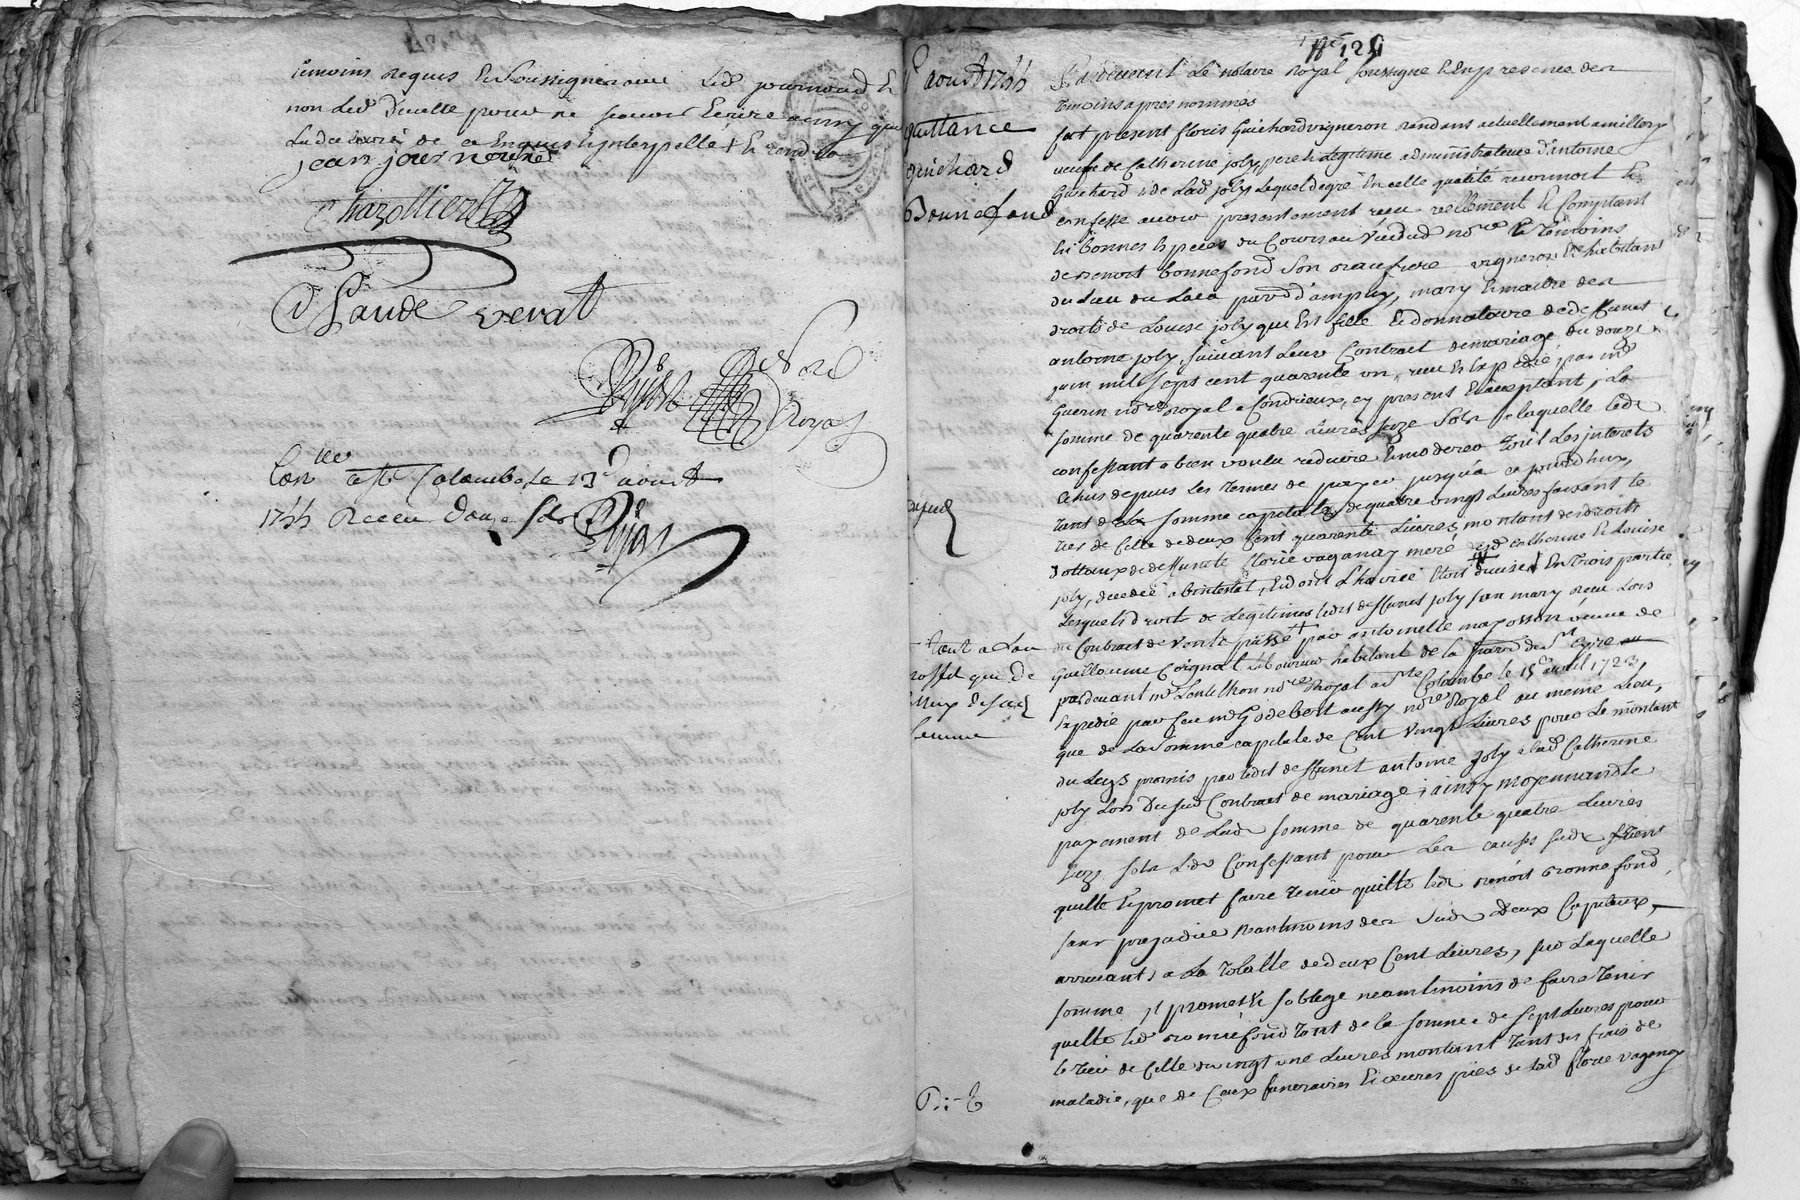 temoins requis et soussignés avec led journoud et
non led pour ne scavoir ecrire ainsy que
La declaré de ce Enquis et interpellé + et
jean journoud
Chazottier
Claude verat
Pijst No.re
Royal
Con.lle a Ste Colombe le 13e aoust
1744 Receu douze sols
Pijst
N.e 124
1er aoust 1744
quittance
guichard
Bonnefond
Pardevant Le notaire royal soussigné et En presence des
temoins apres nommés
fut present floris Guichard vigneron randans actuellement a millery
veuf de Catherine joly, pere et legitime administrateur d'antoine
Guichard et de Lad joly Lequel de gré En celle qualité reconnoit et
confesse avoir presentement receu reellement et Comptant
En bonnes Especes du Cours au veu dud no.re et temoins
de benoit bonnefond Son beaufrere vigneron et habitans
du Lieu du Laca parr d'ampuy, mary et maitre des
droits de Louise joly que Est fille et donnataire de deffunct
antoine joly suivant Leur Contrat de mariage du douze
juin mil sept cent quarente un, receu et Expedié par me
Guerin no.re royal a Condrieux, cy present et acceptant, La
somme de quarente quatre Livres seize Sols a laquelle led
confessant a bien voulu reduire et moderer tout Les interets
Echus depuis Les termes de payer jusqu'a ce jourd'huy,
tant de La somme capitale de quatre vingt Livres faisant le
tier de Celle de deux Cent quarente Livres montant des droits
dottaux de deffuncte florie vaganay mere desd Catherine et Louise
joly, decedée abintestat, Et dont L'hoirie Etoit divisée En trois partie
Lesquels droit de Legitimes led deffunct joly son mary receu Lors
du Contract de vente passé + par antoinette mazosson veuve de
Guillaume Coignat Laboureur habitant de la parr de St Cyr
pardevant me Lentilhon no.re royal a Ste Colombe le 15e avril 1723,
Expedié par feu me Godebert aussy no.re Royal au meme Lieu,
que de La somme capitale de Cent Vingt Livres pour Le montant
du Legs promis par ledit deffunct antoine joly a lad Catherine
joly Lors Dusud Contract de mariage ; ainsy moyennant le
payement de Lad somme de quarente quatre Livres
seize sols Led Confessant pour Les causes sud tient
quitte et promet faire tenir quitte led benoit bonnefond
sans prejudice neantmoins des Sud deux Capitaux,
arrivants a La totalle de deux Cent Livres, sur Laquelle
somme, il promet et soblige neantmoins de faire tenir
quitte led bonnefond tant de la somme de sept Livres pour
le tier de Celle de vingt une Livres montant tant des frais de
maladie, que de Ceux funeraires et œuvres pies de lad florie vaganay
+ tant a Son
proffit que de
Ceux de sad
femme